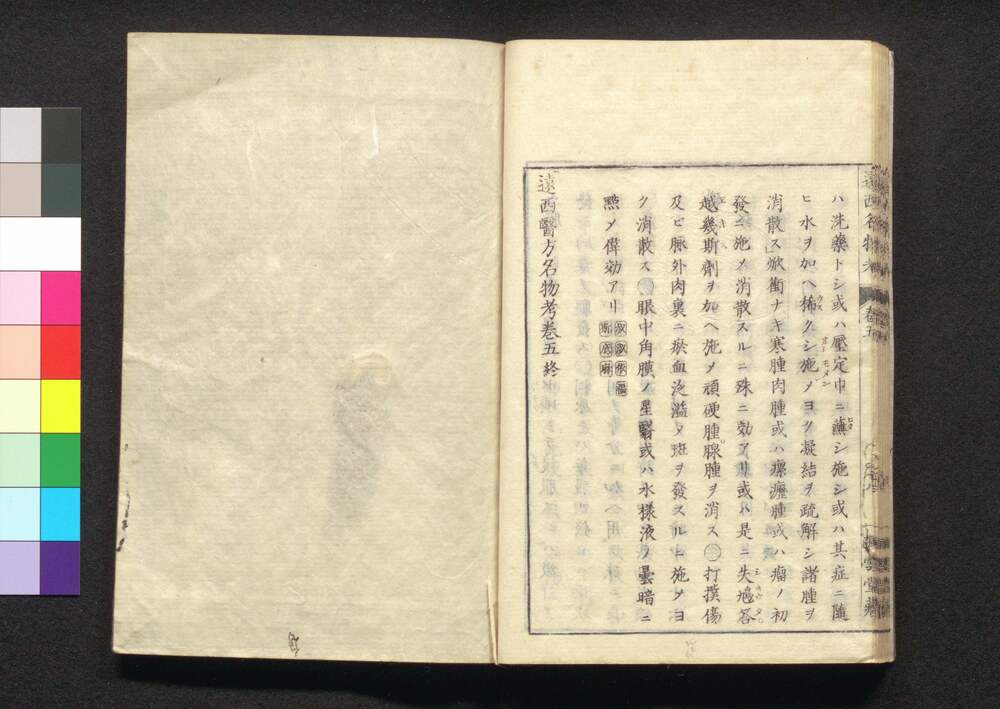 遠西名物考 卷五
ハ洗藥トシ或ハ壓定巾ニ蘸シ施シ或ハ其症ニ隨
ヒ水ヲ加ヘ稀クシ施メヨク凝結ヲ疏解シ諸腫ヲ
消散ス焮衝ナキ寒腫肉腫或ハ瘰癧腫或ハ瘤ノ初
發ニ施メ消散スルニ殊ニ効アリ或ハ是ニ失鳩答
越幾斯劑ヲ加ヘ施メ頑硬腫腺腫ヲ消ス 打撲傷
及ビ脉外肉裏ニ瘀血泛濫メ斑ヲ發スルニ施メヨ
ク消散ス 眼中角膜ノ星翳或ハ水樣液ノ曇暗ニ
㸃メ偉効アリ
遠西醫方名物考卷五終